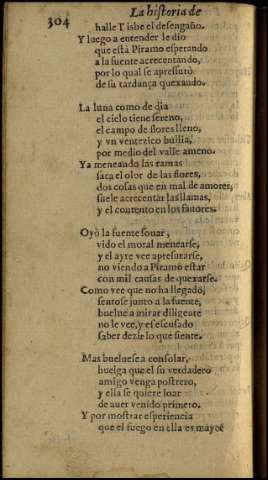 304
La historia de
halle Tisbe el desengaño.
Y luego a entender le dio
que està Piramo esperando
a la fuente acrecentando,
por lo qual se apressurò
de su tardança quexando.
La luna como de dia
el cielo tiene sereno,
el campo de flores lleno,
y vn ventezico bullia,
por medio del valle ameno.
Ya meneando las ramas
saca el olor de las flores,
dos cosas que en mal de amores,
suele acrecentar las llamas,
y el contento en los fautores.
Oyò la fuente sonar,
vido el moral menearse,
y el ayre vee apresurarse,
no viendo a Piramo estar
con mil causas de quexarse.
Como vee que no ha llegado,
sentose junto a la fuente,
buelue a mirar diligente
no le vee, y es escusado
saber dezir lo que siente.
Mas bueluese a consolar,
huelga que el su verdadero
amigo venga postrero,
y ella se quiere loar
de auer venido primero.
Y por mostrar esperiencia
que el fuego en ella es mayor